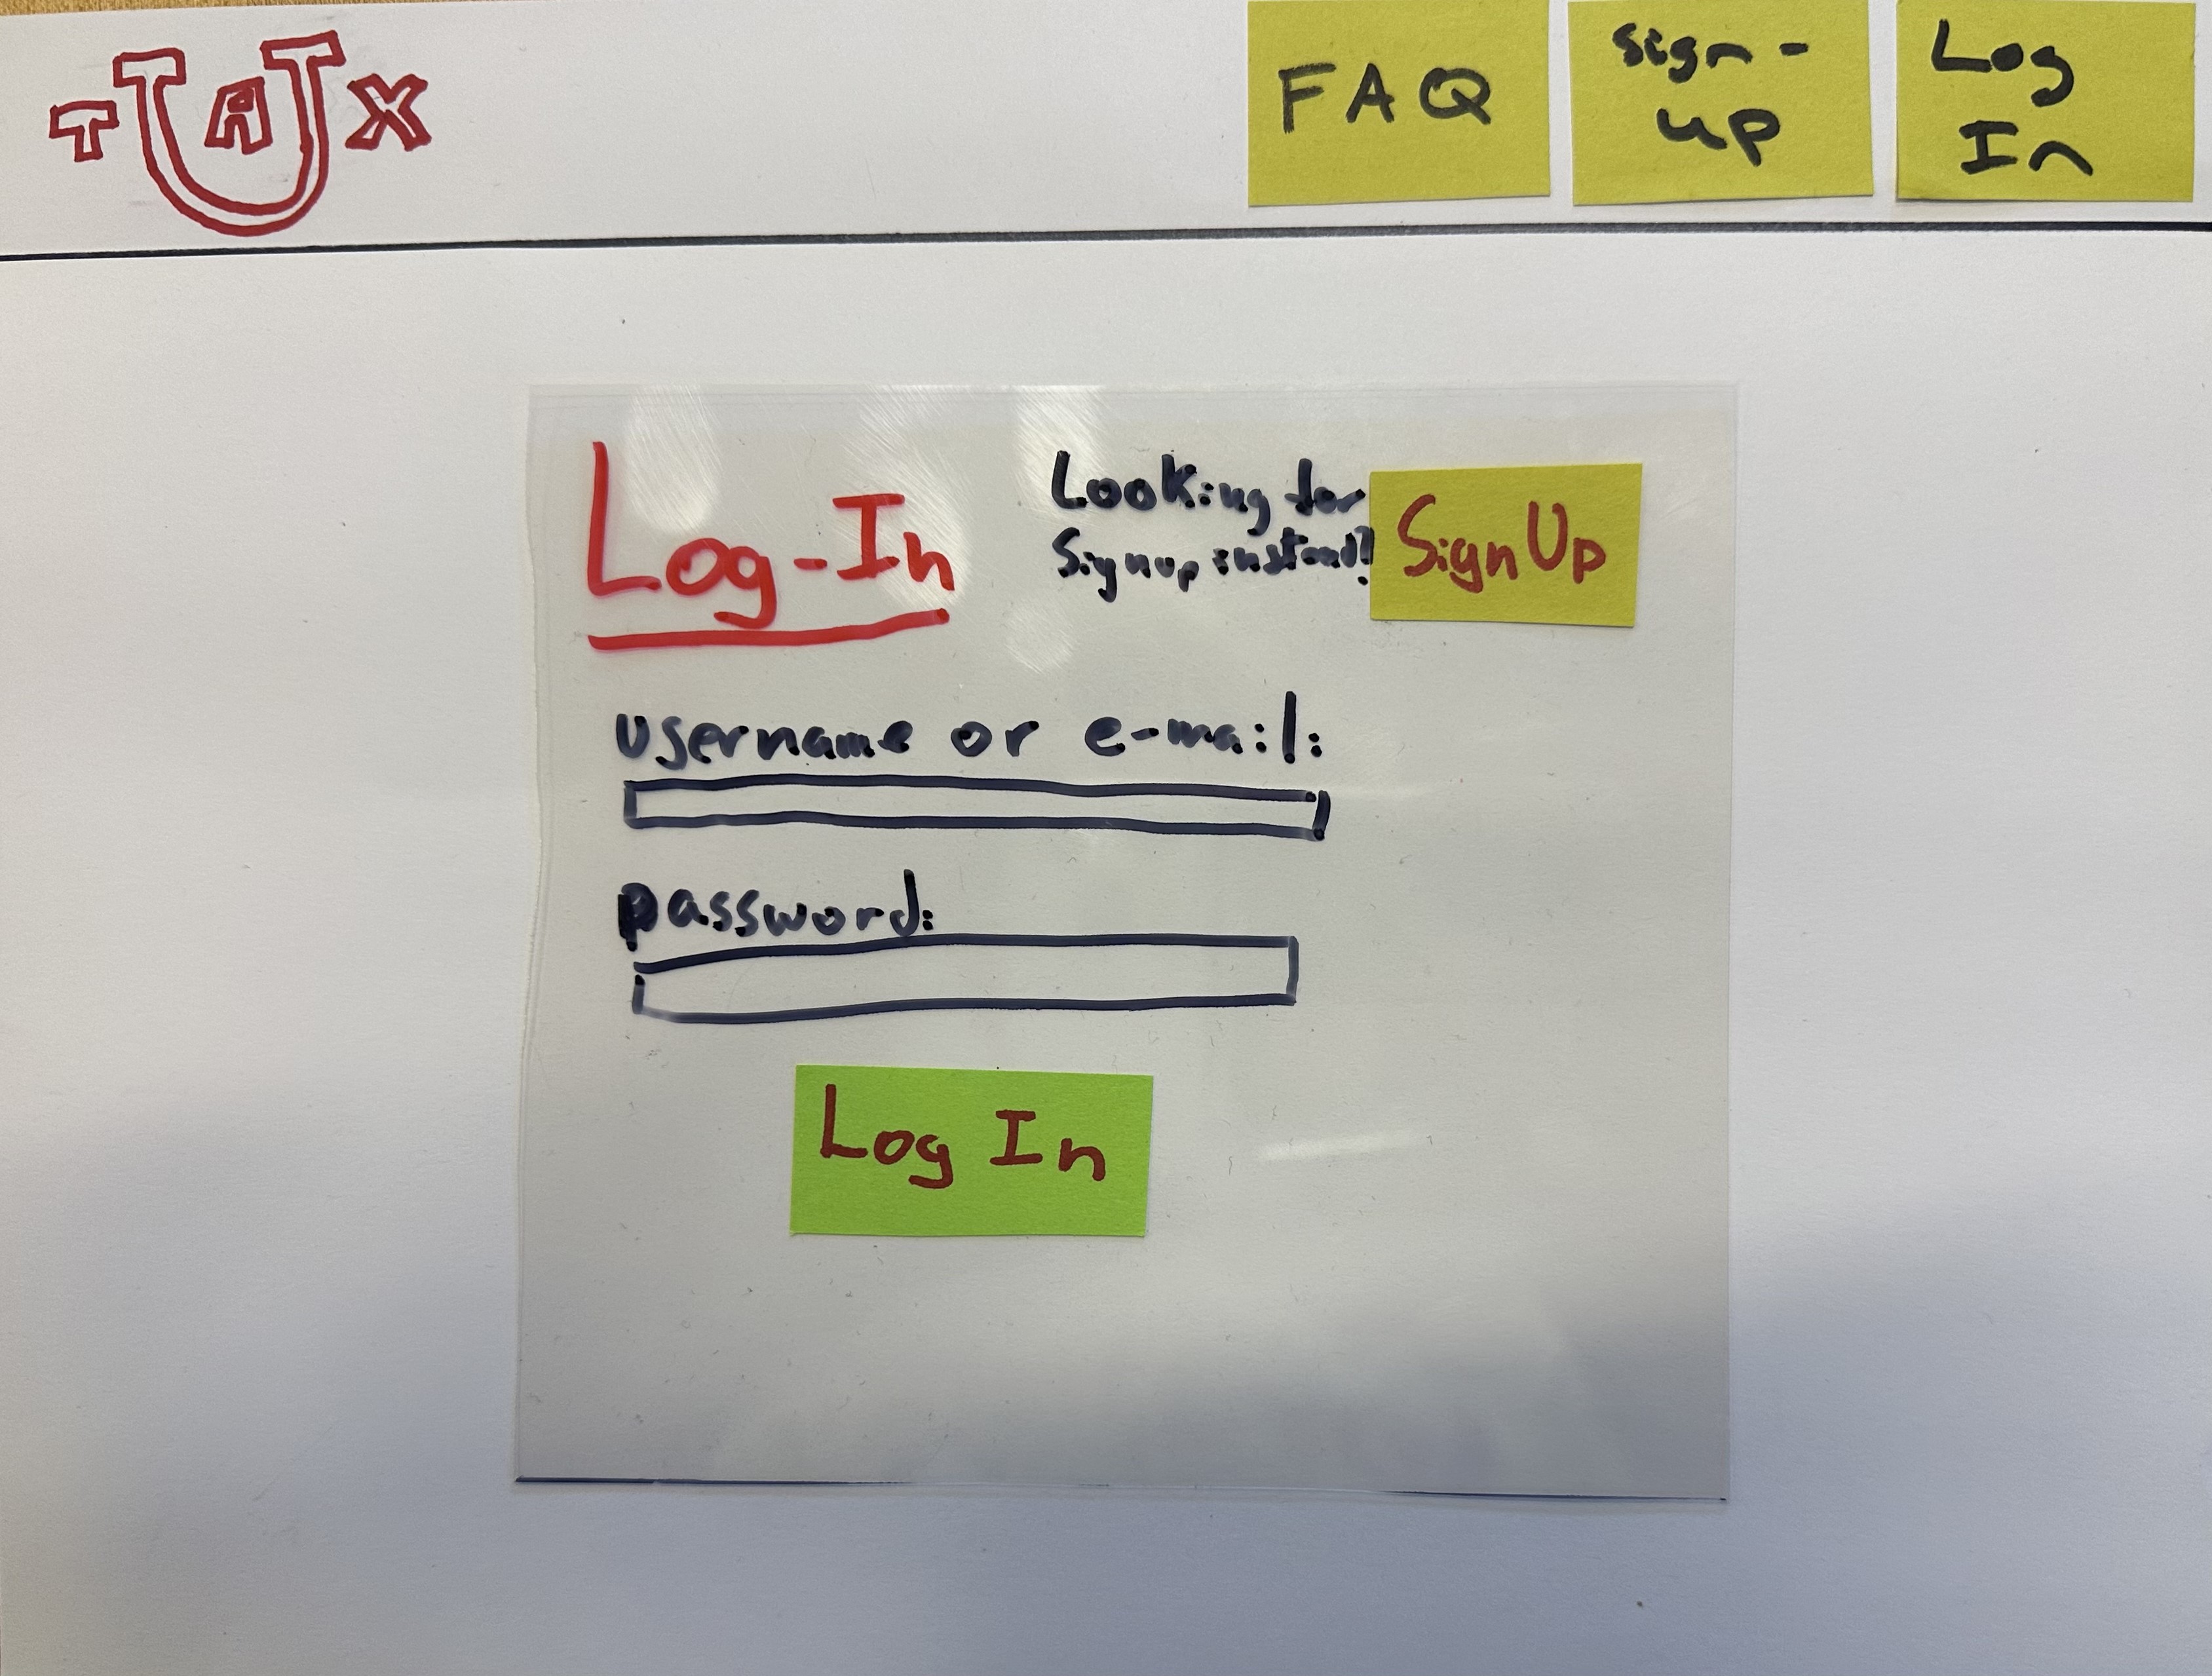 TUAX
FAQ
sign-
up
Log
In
Log-In
Looking for
Signup instead?
SignUp
username or e-mail:
password:
Log In